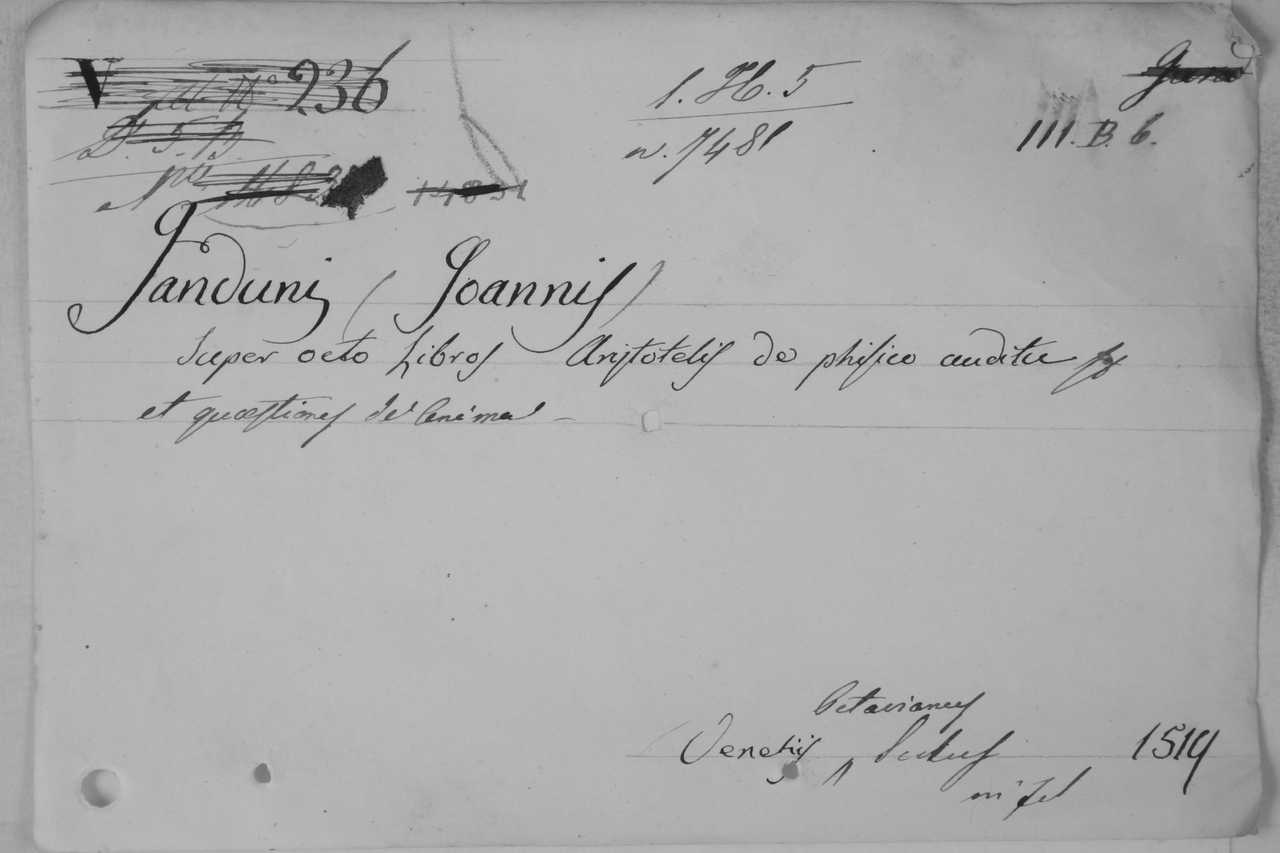 V 236
1. H. 5
n. 7481
III. B. 6.
Janduni (Joannis)
Super octo Libros Aristotelis de phisico auditu
et quæstiones de Anima
Octavianus
Venetiis Scotus 1519